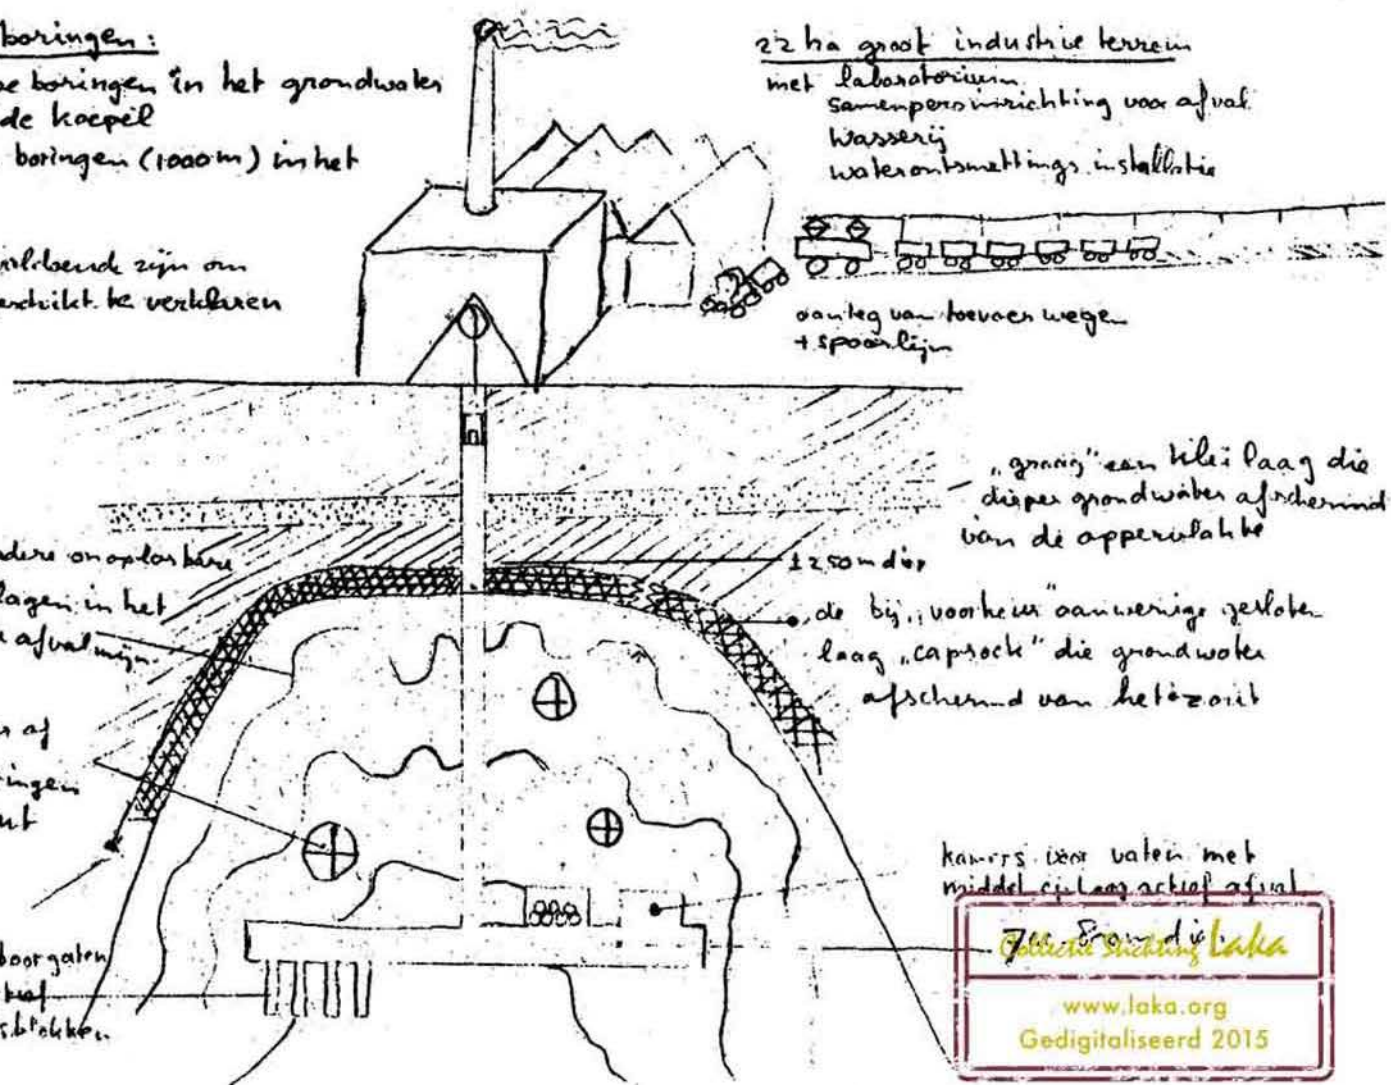 boringen:
boringen in het grondwater
de koepel
boringen (1000m) in het
zijn om
te verklaren
22 ha groot industrie terrein
met laboratorium
samenpersinrichting voor afval
wasserij
waterontsmettings installatie
aanleg van toevoer wegen
+ spoorlijn
"grasig" een klei laag die
dieper grondwater afschermd
van de oppervlakte
±250m diep
de bij "voorkeur" aanwezige gesloten
laag "caprock" die grondwater
afschermd van het zout
onoplosbare
lagen in het
afvalmijn
af
kamers voor vaten met
middel actief afval
boorgaten
Collectie Stichting Laka
www.laka.org
Gedigitaliseerd 2015